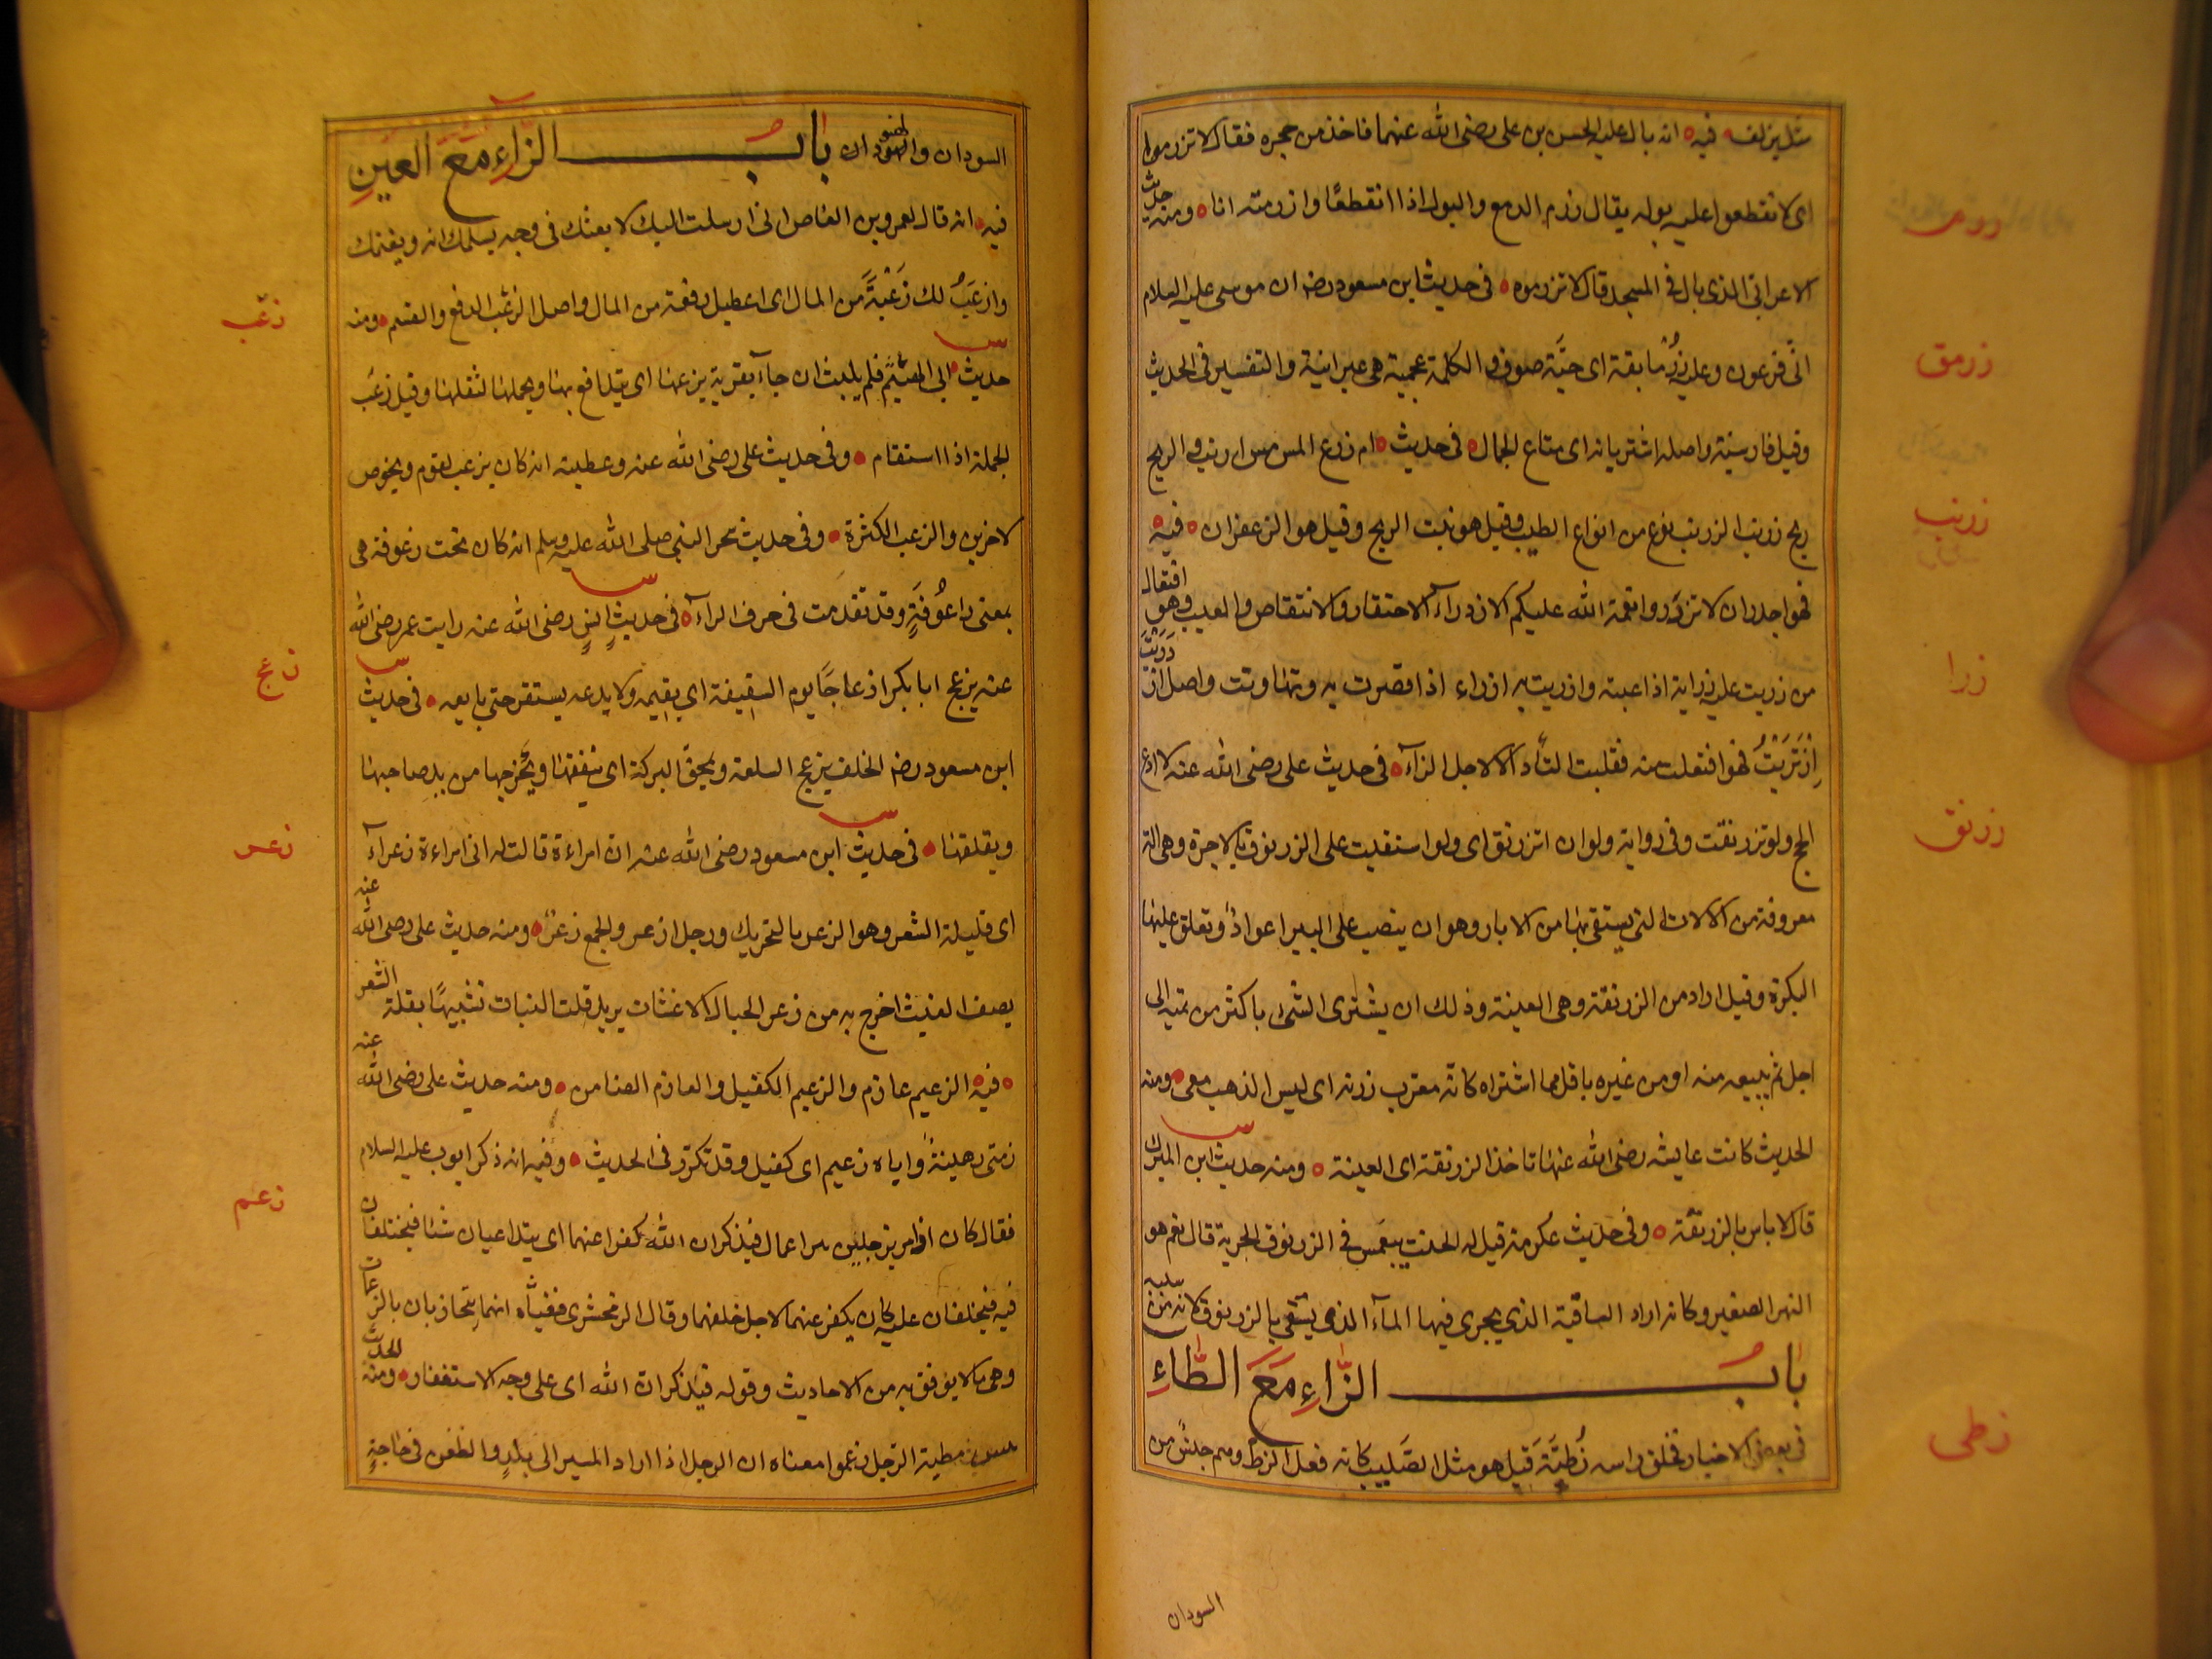 شليزلفه فيه انه بال عليه الحسن بن على رضى الله عنهما فاخذ من حجره فقال لا تزرموا
اى لا تقطعوا عليه بوله يقال زرم الدمع والبول اذا انقطعا وازرمته انا ومنه حديث
الاعرابى الذى بال فى المسجد قال لا تزرموه فى حديث ابن مسعود رضه ان موسى عليه السلام
زرم
اتى فرعون وعليه زرمانقة اى جبة صوف والكلمة عجمية هى عبرانية والتفسير فى الحديث
زرمق
وقيل فارسية واصله اشتربانه اى متاع الجمال فى حديث ام زرع المس مس ارنب والريح
ريح زرنب الزرنب نوع من انواع الطيب وقيل هو نبت الريح وقيل هو الزعفران فيه
زرنب
فهو اجدر ان لا تزدروا نعمة الله عليكم الازدراء الاحتقار والانتقاص والعيب وهو افتعال
من زريت عليه زراية اذا عبته وازريت به ازراء اذا قصرت به وتهاونت واصل ازدريت
زرا
ازتريت فهو افتعلت منه فقلبت التاء دالا لاجل الزاء فى حديث على رضى الله عنه لا ادع
الحج ولو تزرنقت وفى رواية ولو ان اتزرنق اى ولو استقيت على الزرنوق بالاجرة وهى الة
زرنق
معروفة من الالات التى يستقى بها من الابار وهو ان ينصب على البير اعواد وتعلق عليها
البكرة وقيل اراد من الزرنقة وهى العينة وذلك ان يشترى الشئ باكثر من ثمنه الى
اجل ثم يبيعه منه او من غيره باقل مما اشتراه كانه معرب زرنه اى ليس الذهب معى ومنه
الحديث كانت عايشه رضى الله عنها تاخذ الزرنقة اى العينة ومنه حديث ابن المبرك
قال لا باس بالزرنقة وفى حديث عكرمة قيل له الجنب ينغمس فى الزرنوق الجرية قال نعم هو
النهر الصغير وكانه اراد الساقية الذى يجرى فيها الماء الذى يستقى بالزرنوق لانه من سببه
باب الزاء مع الطاء
فى بعض الاخبار فحلق راسه زطية قيل هو مثل الصليب كانه فعل الزط وهم جنس من
زطى
السودان
السودان والهنود باب الزاء مع العين
فيه انه قال لعمرو بن العاص انى ارسلت اليك لابعثك فى وجه يسلمك الله ويغنمك
وازعب لك زعبة من المال اى اعطيك دفعة من المال واصل الزعب الدفع والقسم ومنه
زعب
حديث ابى الهيثم فلم يلبث ان جاء بقربة يزعبها اى يتدافع بها ويحملها لثقلها وقيل زعب
الحمله اذا استقام وفى حديث على رضى الله عنه وعطيته انه كان يزعب لقوم ويخوص
لاخرين والزعب الكثرة وفى حديث سحر النبى صلى الله عليه وسلم انه كان تحت زعوفة هى
بمعنى راعوفة وقد تقدمت فى حرف الراء فى حديث انس رضى الله عنه رايت عمر رضى الله
عنه يزعج ابا بكر ازعاجا يوم السقيفة اى يقيمه ولا يدعه يستقر حتى بايعه فى حديث
زعج
ابن مسعود رضه الحلف يزعج السلعة ويمحق البركة اى ينفقها ويخرجها من يد صاحبها
ويقلقها فى حديث ابن مسعود رضى الله عنه ان امراءة قالت له انى امراءة زعراء
زعر
اى قليلة الشعر وهو الزعر بالتحريك ورجل ازعر والجمع زعر ومنه حديث على رضى الله عنه
يصف الغيث اخرج به من زعر الجبال الاعشاب يريد قلت النبات تشبيها بقلة الشعر
فيه الزعيم غارم والزعيم الكفيل والغارم الضامن ومنه حديث على رضى الله عنه
ذمتى رهينة وايا به زعيم اى كفيل وقد تكرر فى الحديث وفيه انه ذكر ايوب عليه السلام
زعم
فقال كان اذا مر برجلين يزاعمان فيذكران الله كفر عنهما اى يتداعيان شئا فيختلفان
فيه فيحلفان عليه كان يكفر عنهما لاجل حلفهما وقال الزمخشرى معناه انهما يتحاذبان بالزعمات
وهى ما لا يوفق به من الاحاديث وقوله فيذكران الله اى على وجه الاستغفار ومنه الحديث
بئس مطية الرجل زعموا معناه ان الرجل اذا اراد المسير الى بلد والظعن فى حاجة